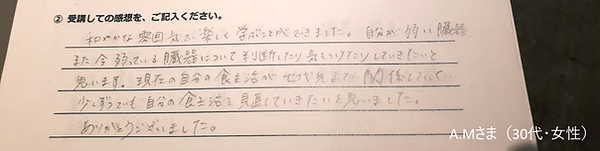 ② 受講しての感想を、ご記入ください。
和やかな雰囲気で楽しく学ぶことができました。自分が弱い臓器
また今弱っている臓器について判断したり気をつけたりしていきたいと
思います。現在の自分の食生活が 関係していく
少しずつでも自分の食生活を見直していきたいと思いました。
ありがとうございました。
A.Mさま（30代・女性）